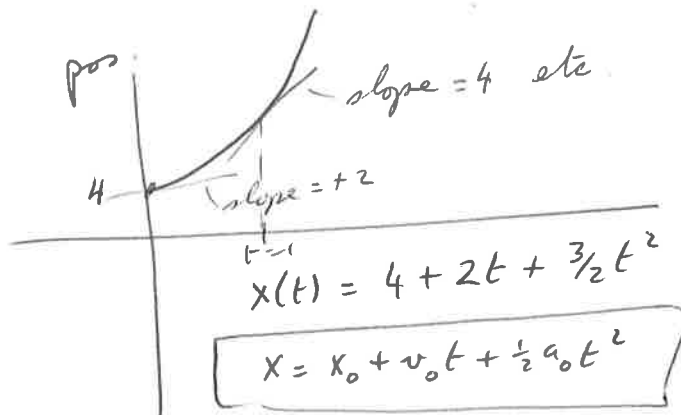 pos
slope = 4 etc
4
slope = +2
t=1
x(t) = 4 + 2t + 3/2 t²
x = x₀ + v₀t + ½ a₀t²